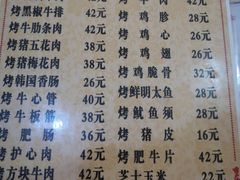 烤黑椒牛排 42元
烤牛肋条肉 42元
烤猪五花肉 38元
烤猪梅花肉 38元
烤韩国香肠 26元
烤牛心管 40元
烤牛板筋 38元
烤肥肠 36元
烤护心肉 42元
烤方块牛肉 42元
烤鸡胗 28元
烤鸡心 28元
烤鸡翅 26元
烤鸡脆骨 32元
烤鲜明太鱼 28元
烤鱿鱼须 28元
烤猪皮 16元
烤肥牛片 42元
芝士玉米 22元